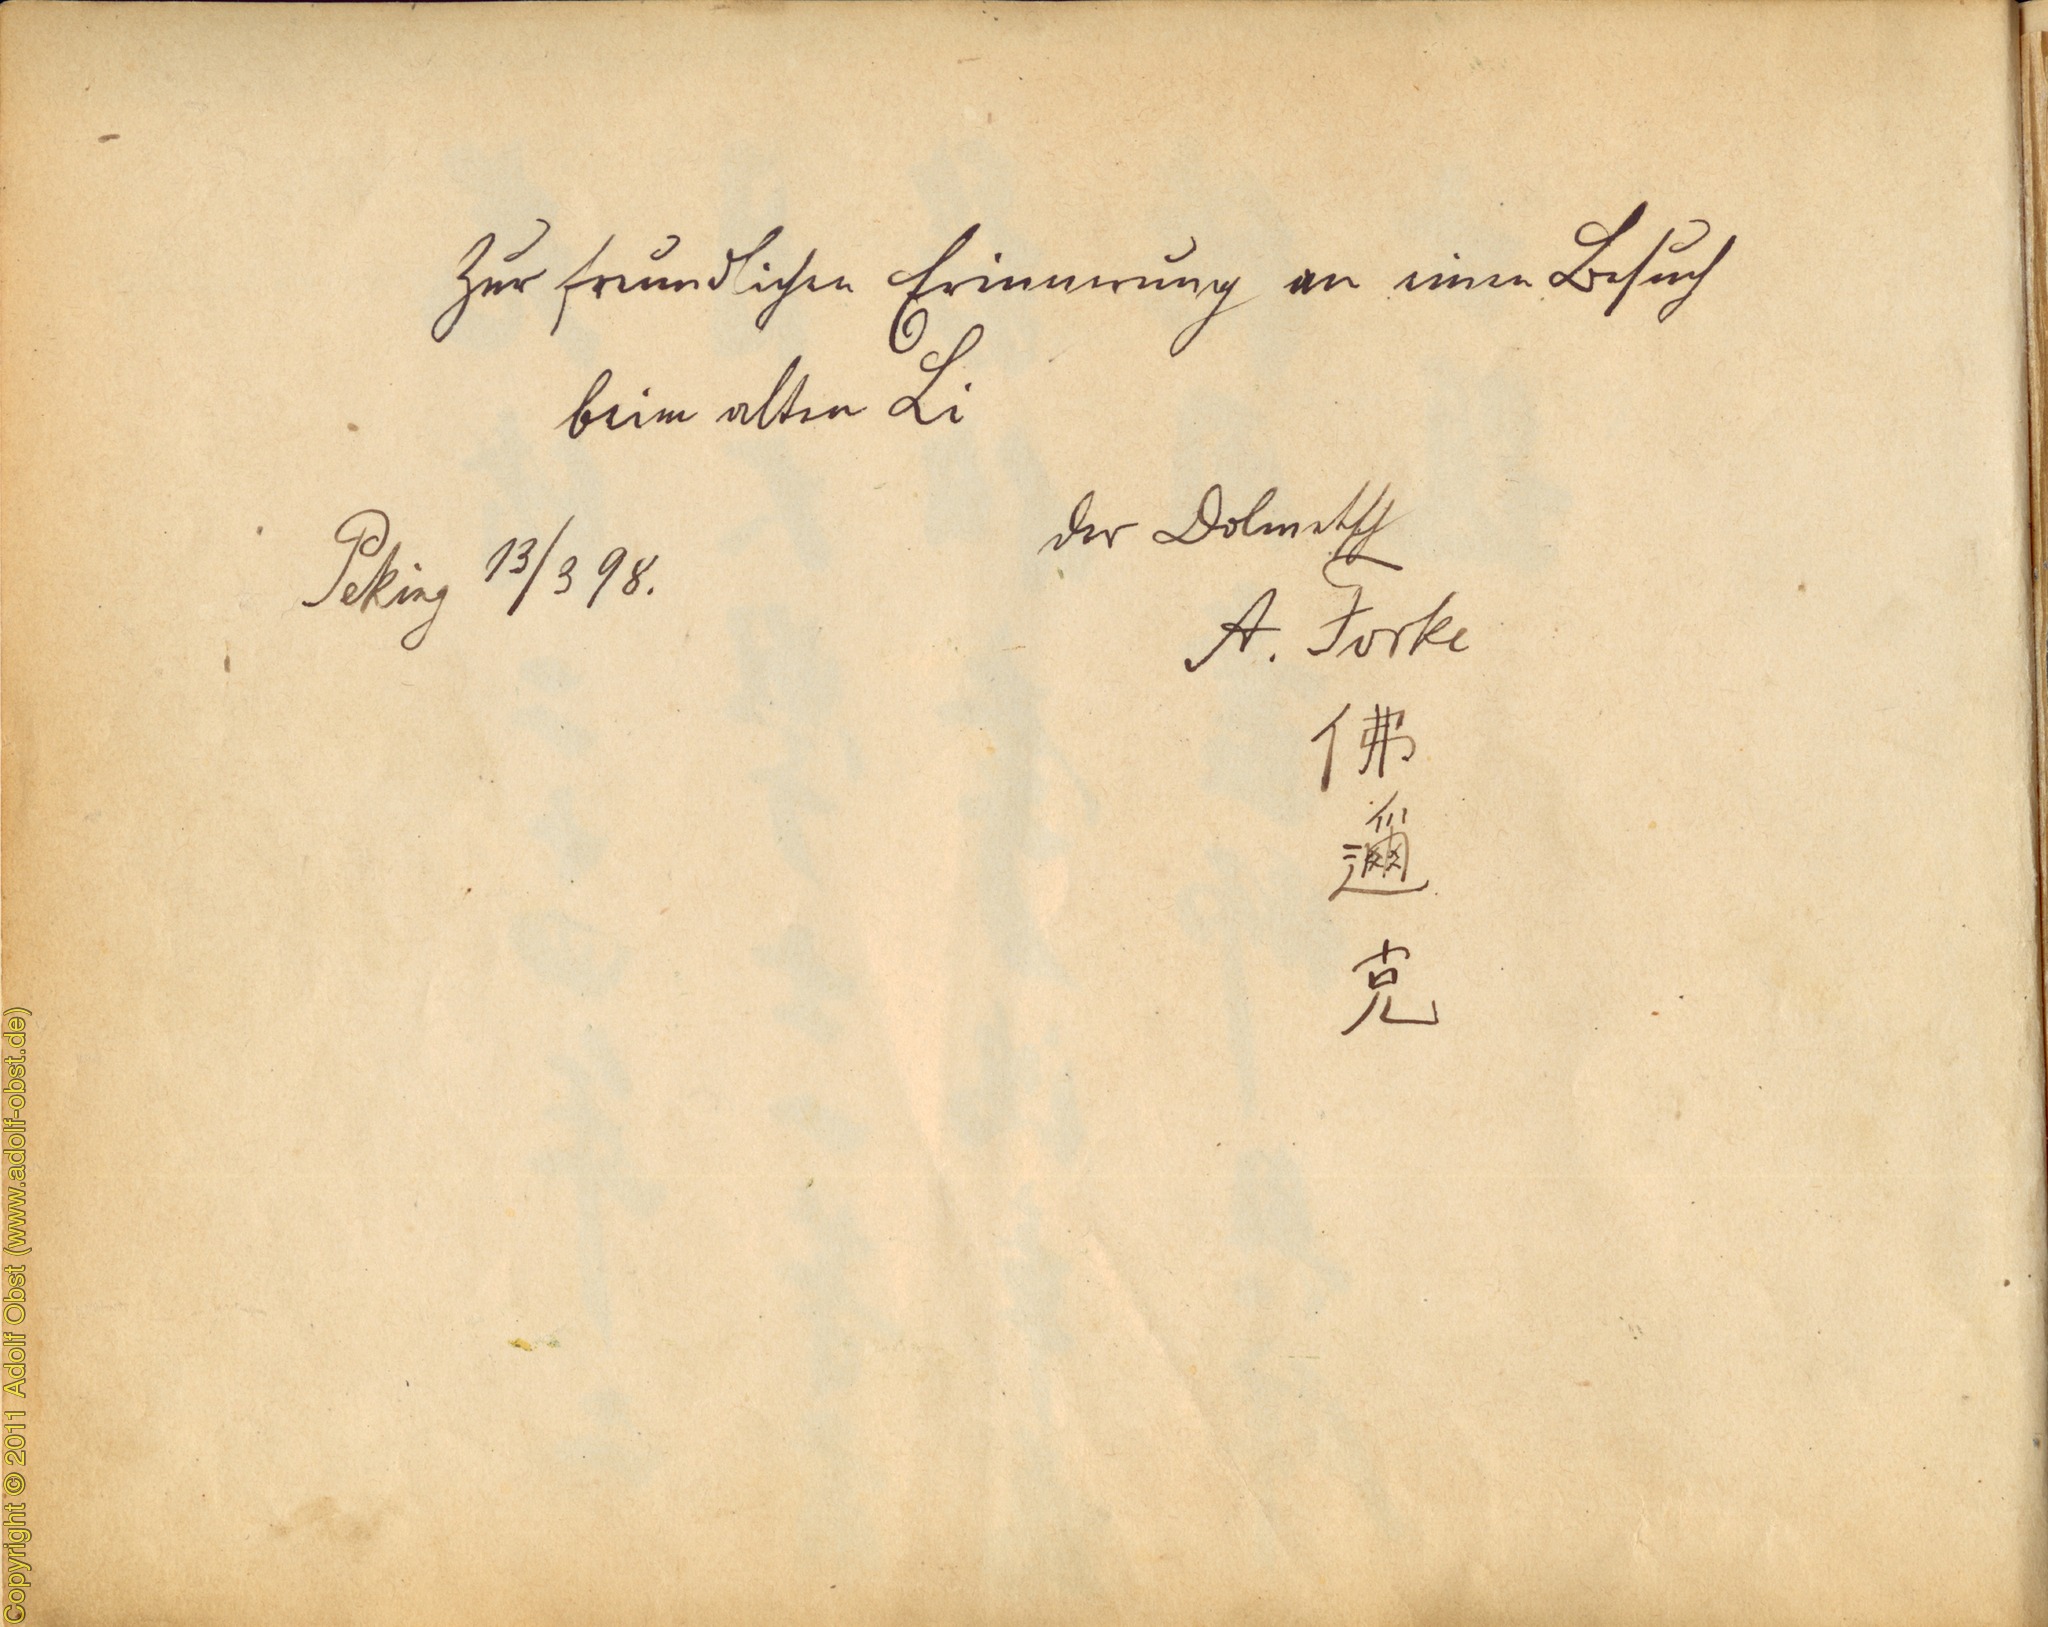 Zur freundlichen Erinnerung an einen Besuch
beim alten Li
der Dolmetsch
Peking 13/3 98.
A. Forke
佛
邇
克
Copyright © 2011 Adolf Obst (www.adolf-obst.de)